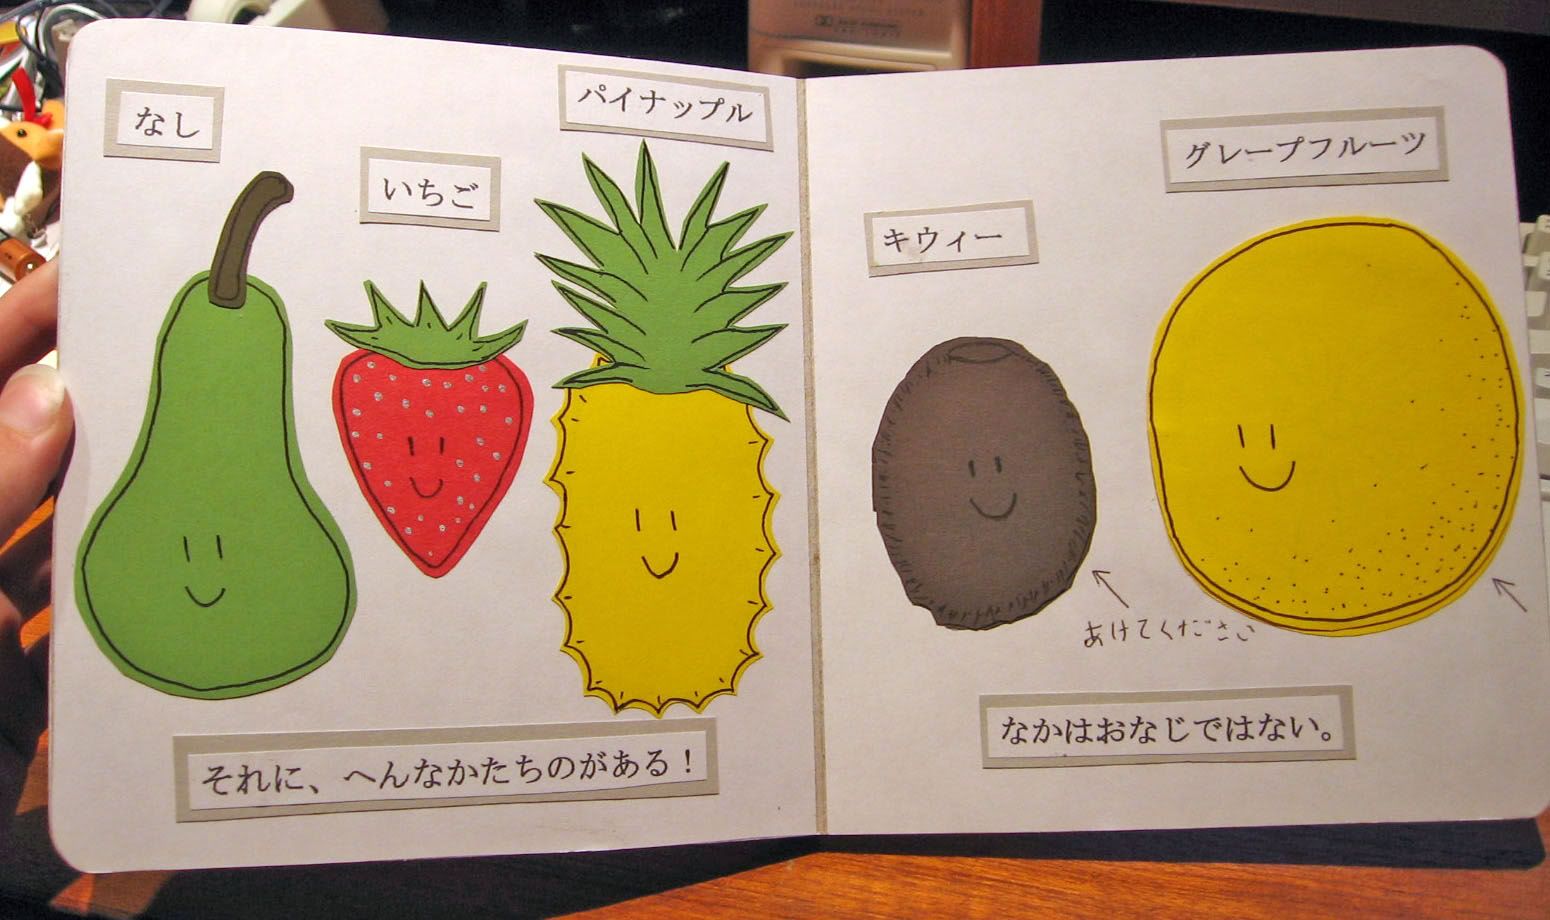 なし
いちご
パイナップル
それに、へんなかたちのがある！
キウィー
グレープフルーツ
あけてください
なかはおなじではない。